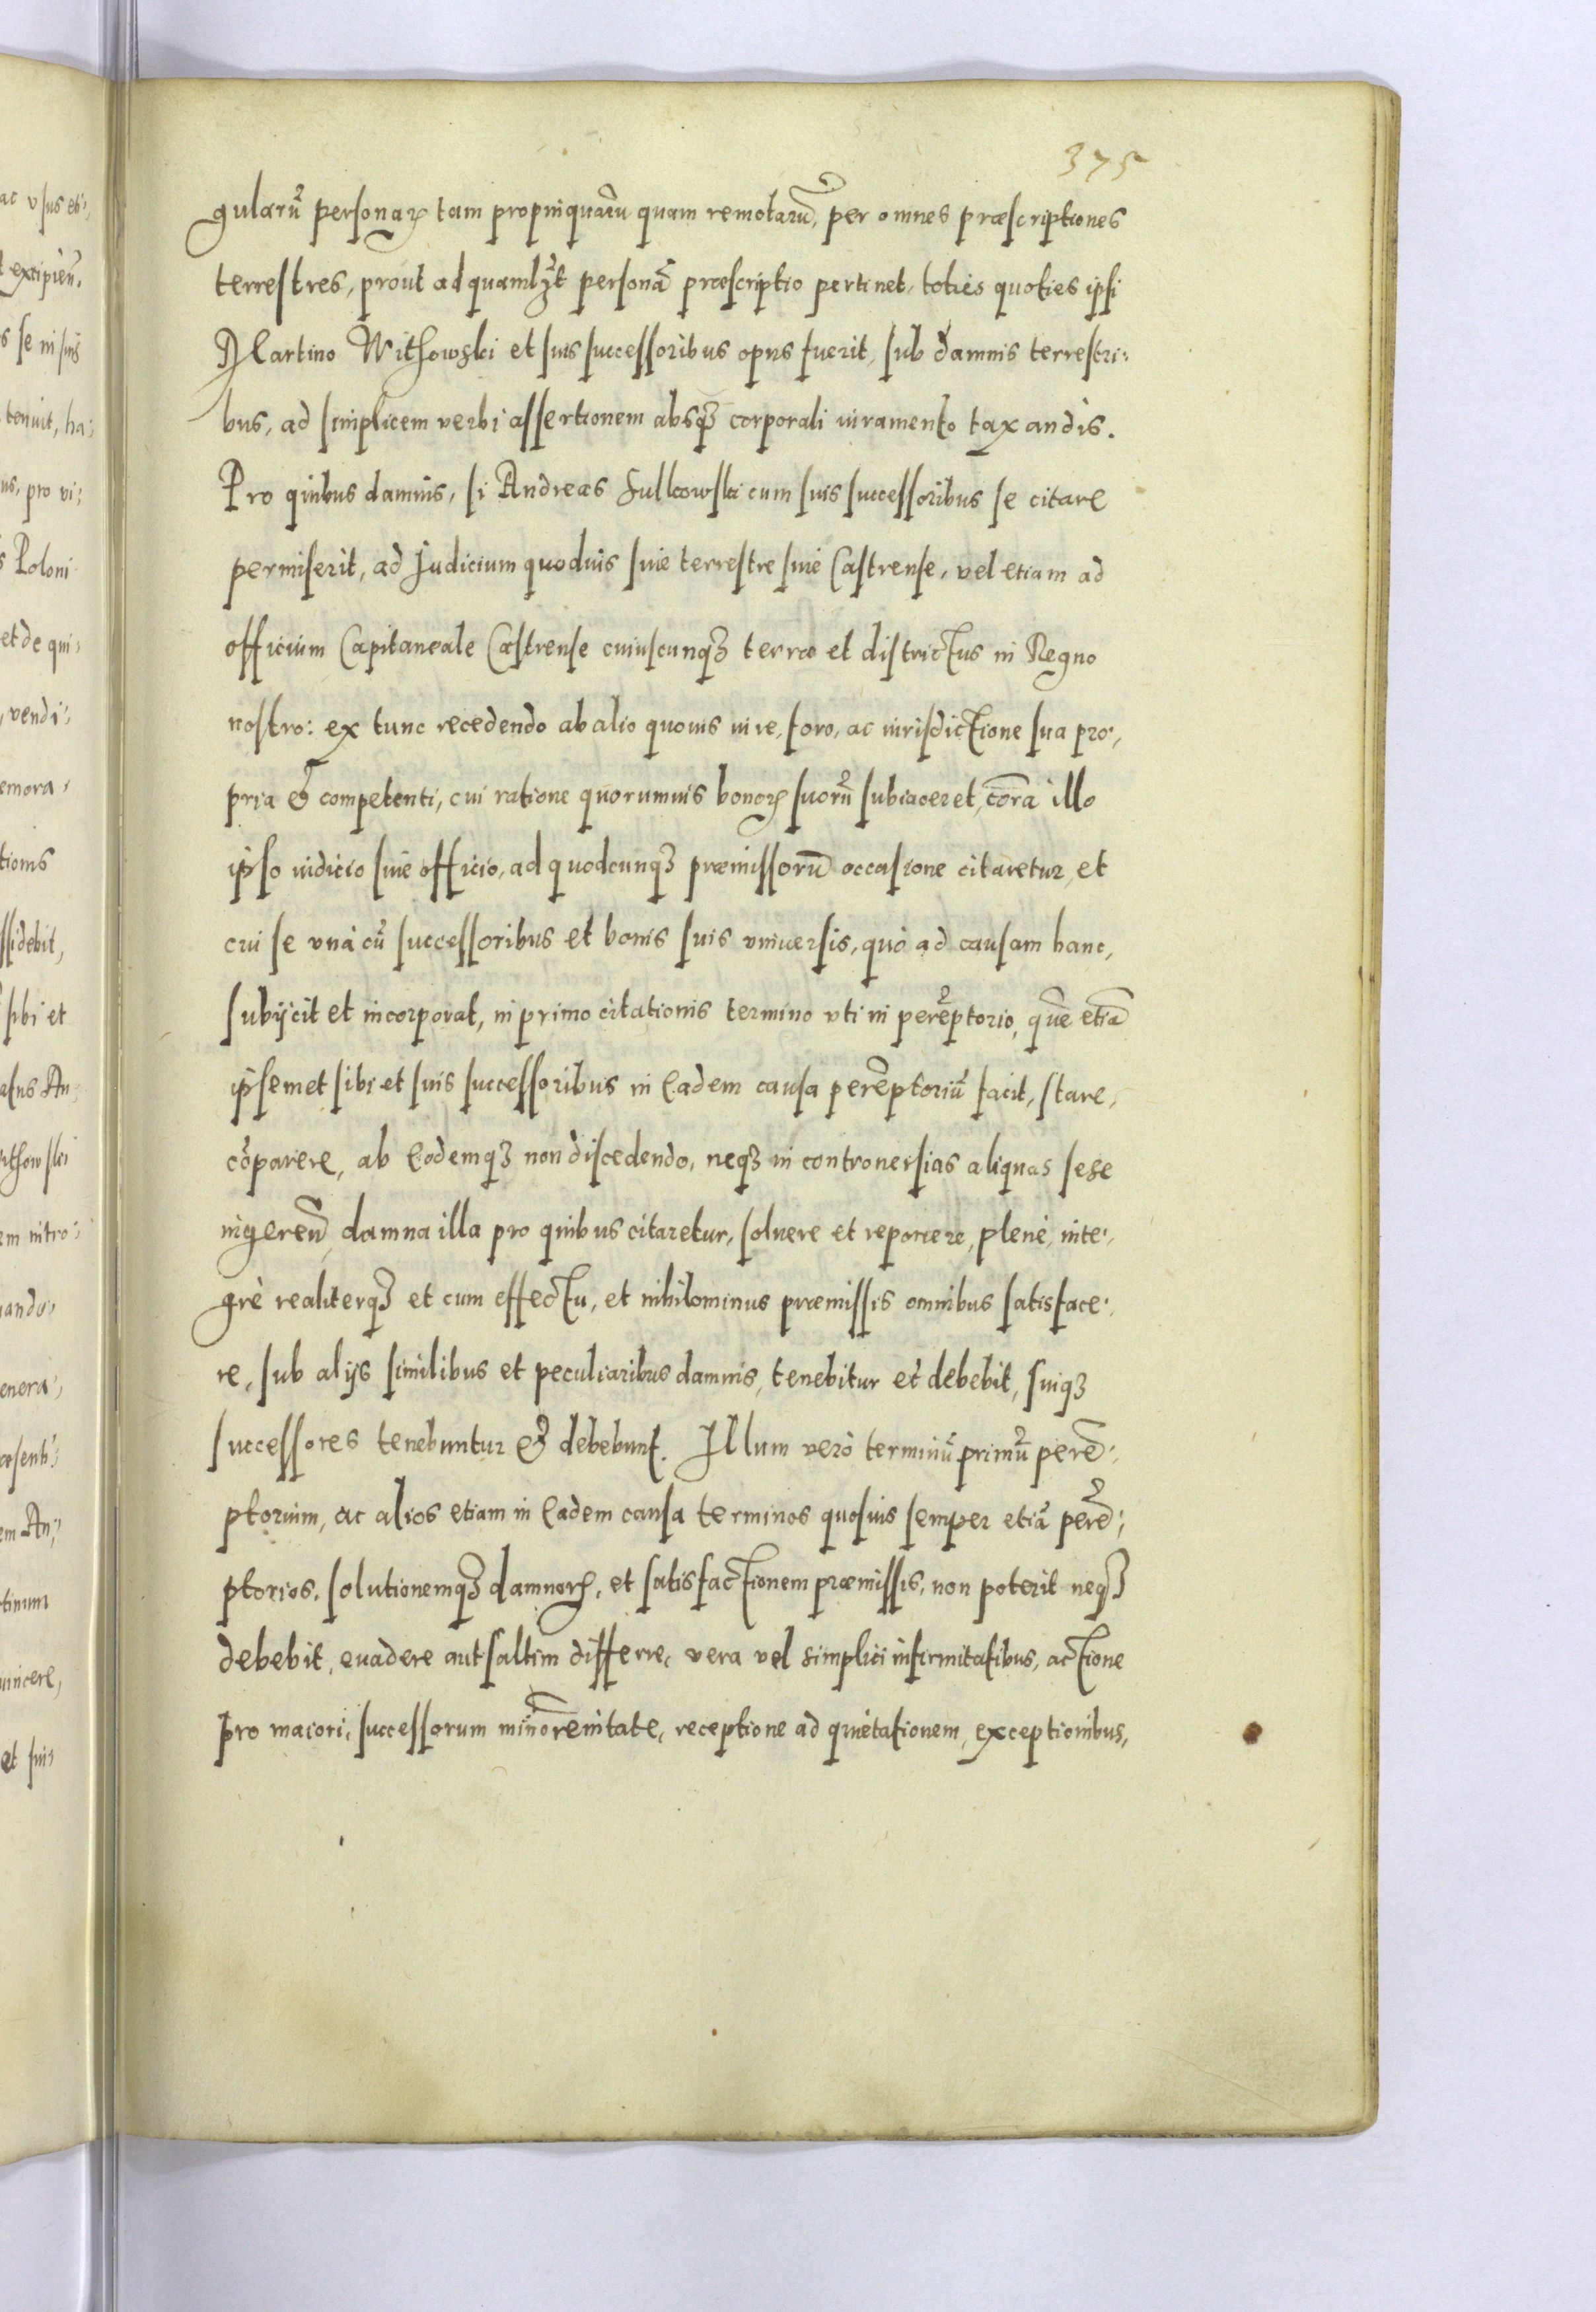 375
gularũ personaꝝ tam propinquarũ quam remotarũ, per omnes præscriptiones
terrestres, prout ad quamlꝫt personã præscriptio pertinet, toties quoties ipsi
Martino Withowski et suis successoribus opus fuerit, sub damnis terrestri,
bus, ad simplicem verbi assertionem absqꝫ corporali iuramento taxandis.
Pro quibus damnis, si Andreas Sulkowski cum suis successoribus se citare
permiserit, ad Judicium quoduis siue terrestre siue Castrense, vel etiam ad
officium Capitaneale Castrense cuiuscunqꝫ terræ et districtus in Regno
nostro: ex tunc recedendo ab alio quouis iure, foro, ac iurisdictione sua pro,
pria & competenti, cui ratione quorumuis bonoꝝ suorũ subiaceret, corã illo
ipso iudicio siue officio, ad quodcunqꝫ præmissorũ occasione citaretur, et
cui se vnà cũ successoribus et bonis suis vniuersis, quò ad causam hanc,
subijcit et incorporat, in primo citationis termino vti in perẽptorio, quẽ etiã
ipsemet sibi et suis successoribus in Eadem causa perẽptoriũ facit, stare,
cõparere, ab Eodemqꝫ non discedendo, neqꝫ in controuersias aliquas sese
ingereñ, damna illa pro quibus citaretur, soluere et reponere, plenè, inte,
grè realiterqꝫ et cum effectu, et nihilominus præmissis omnibus satisface,
re, sub alijs similibus et peculiaribus damnis, tenebitur et debebit, suiqꝫ
successores tenebuntur & debebunt. Illum verò terminũ primũ perẽ,
ptorium, ac alios etiam in Eadem causa terminos quosuis semper etiã perẽ,
ptorios, solutionemqꝫ damnoꝝ, et satisfactionem præmissis, non poterit neqꝫ
debebit, euadere aut saltim differre, vera vel simplici infirmitatibus, actione
pro maiori, successorum minorennitate, receptione ad quietationem, exceptionibus,